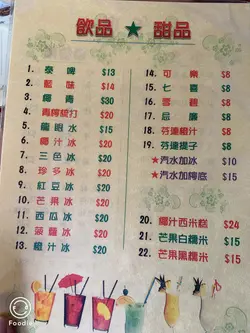 飲品 ★ 甜品
1. 泰啤 $13
2. 藍味 $14
3. 椰青 $30
4. 青檸梳打 $20
5. 龍眼水 $15
6. 椰汁冰 $20
7. 三色冰 $20
8. 珍多冰 $20
9. 紅豆冰 $20
10. 芒果冰 $20
11. 西瓜冰 $20
12. 菠蘿冰 $20
13. 橙汁冰 $20
14. 可樂 $8
15. 七喜 $8
16. 雪碧 $8
17. 忌廉 $8
18. 芬達橙汁 $8
19. 芬達提子 $8
★汽水加冰 $10
★汽水加檸底 $15
20. 椰汁西米糕 $24
21. 芒果白糯米 $15
22. 芒果黑糯米 $15
Foodie